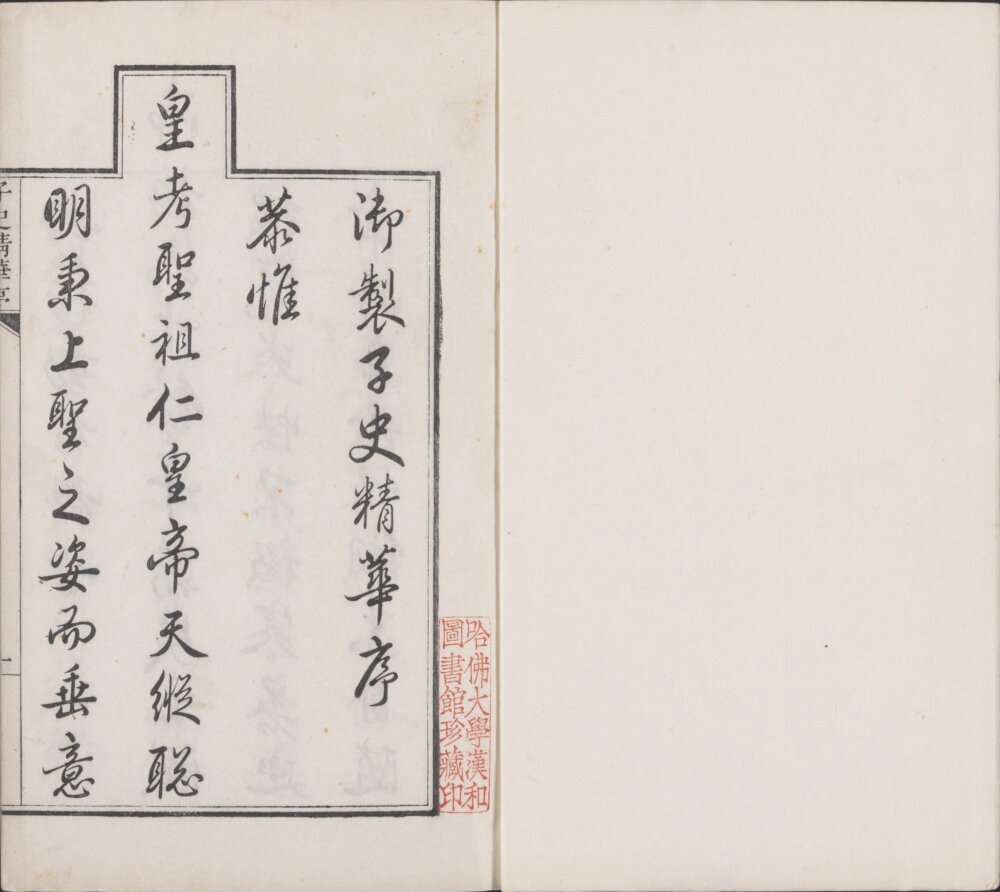 御製子史精華序
恭惟
皇考聖祖仁皇帝天縱聡
明秉上聖之姿而垂意
子史精華序
一
哈佛大學漢和
圖書館珍藏印